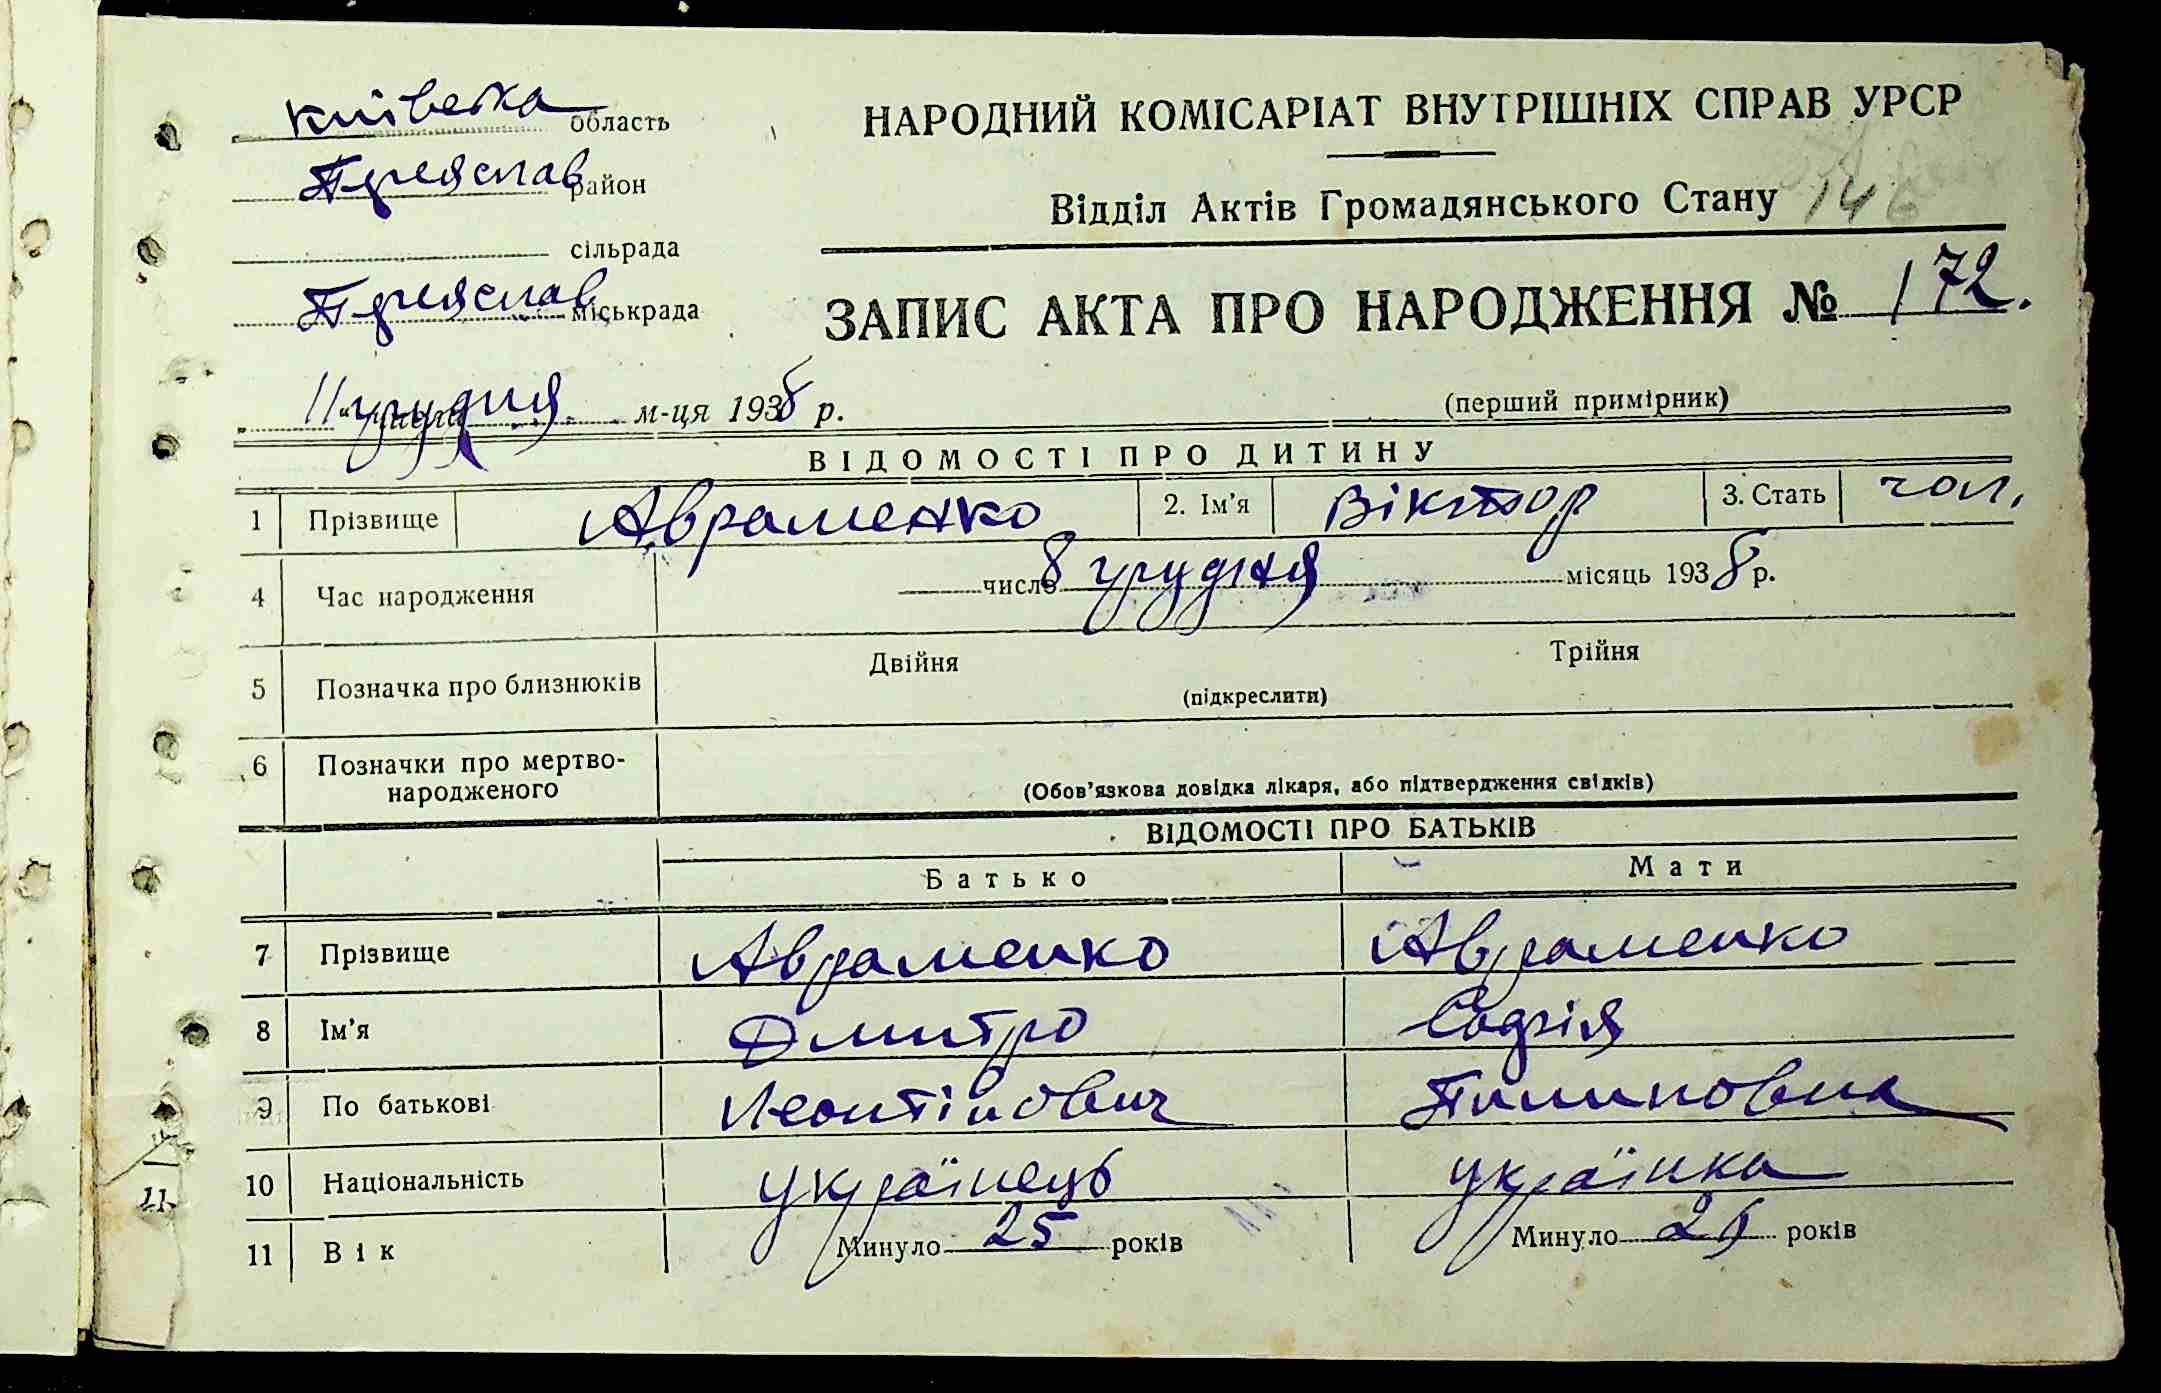 Київська область
НАРОДНИЙ КОМІСАРІАТ ВНУТРІШНІХ СПРАВ УРСР
Переяслав район
Відділ Актів Громадянського Стану 146
сільрада
Переяслав міськрада
ЗАПИС АКТА ПРО НАРОДЖЕННЯ № 172.
11 грудня м-ця 1938 р.
(перший примірник)
ВІДОМОСТІ ПРО ДИТИНУ
1 Прізвище Авраменко 2. Ім'я Віктор 3. Стать чол.
4 Час народження число 8 грудня місяць 1938 р.
5 Позначка про близнюків Двійня Трійня
(підкреслити)
6 Позначки про мертво-
народженого
(Обов'язкова довідка лікаря, або підтвердження свідків)
ВІДОМОСТІ ПРО БАТЬКІВ
Батько Мати
7 Прізвище Авраменко Авраменко
8 Ім'я Дмитро Софія
9 По батькові Леонтіпович Пилиповна
10 Національність українець українка
11 Вік Минуло 25 років Минуло років
11